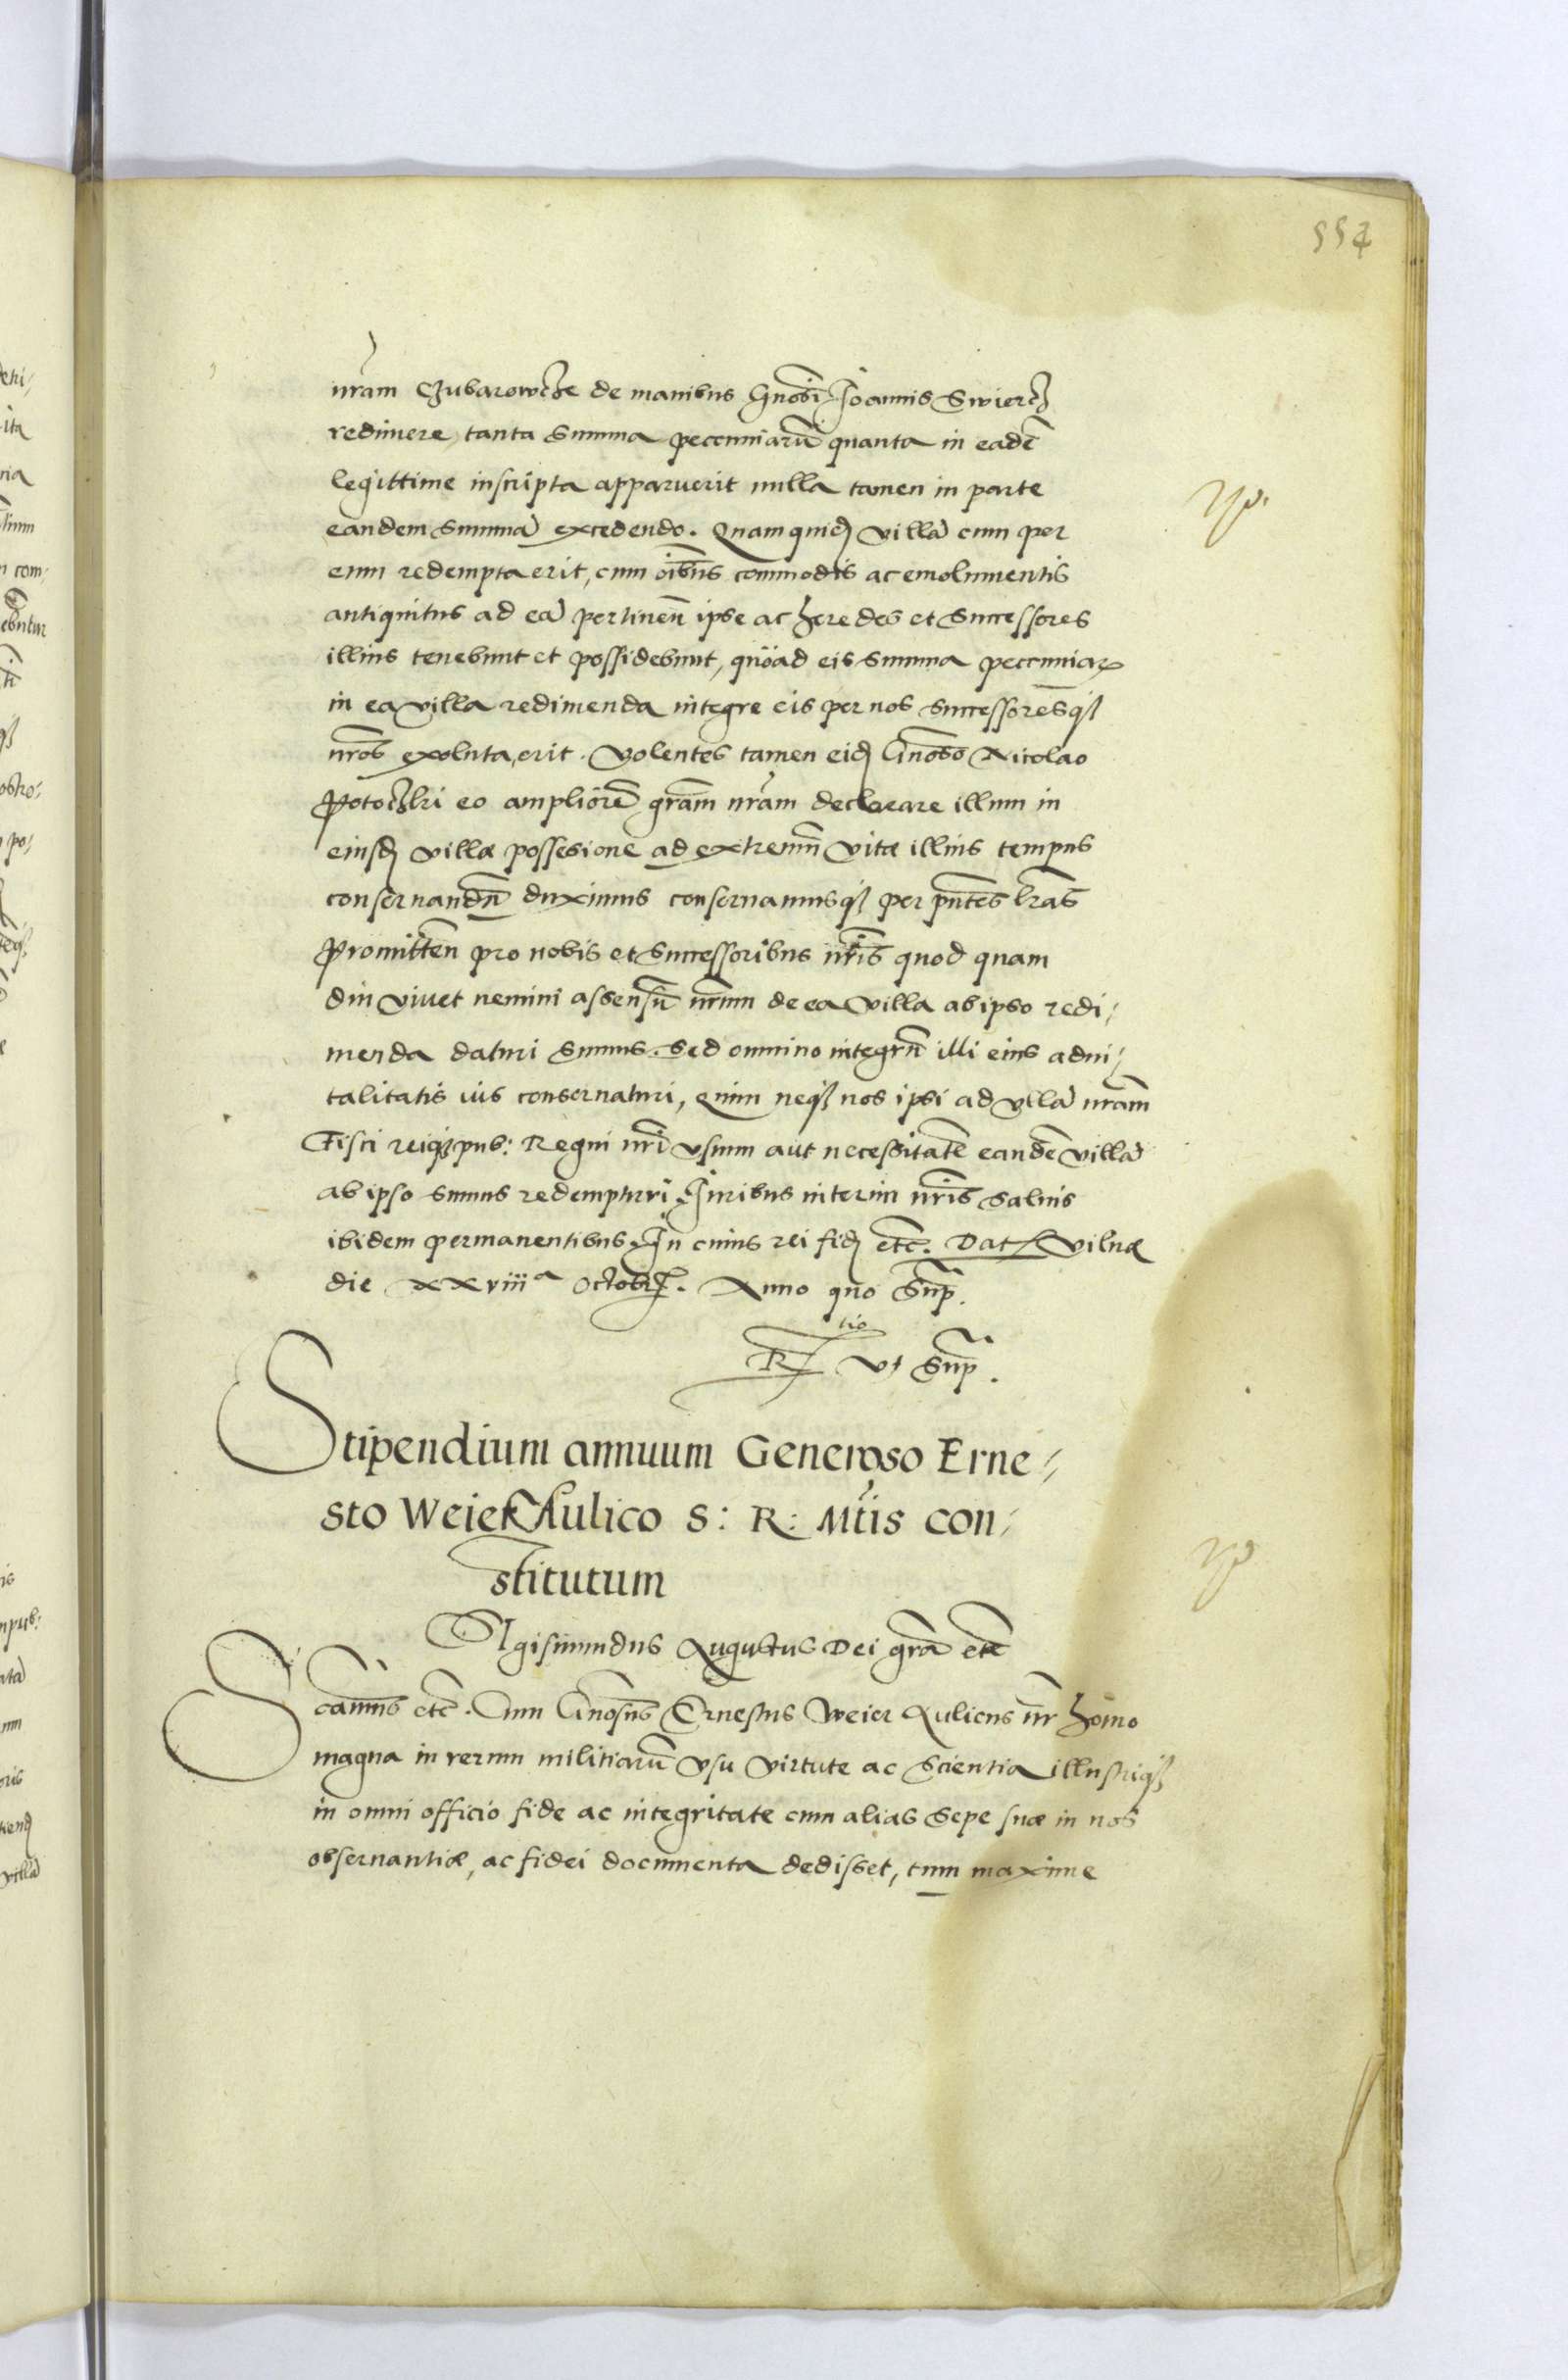 554
nrãm Czubarowcze de manibus Gnosi Joannis Swiercz
redimere, tanta summa pecuniarũ quanta in eadẽ
legittime inscripta apparuerit nulla tamen in parte
eandem summã excedendo. Quam quid villã cum per
eum redempta erit, cum oibus commodis ac emolumentis
antiquitus ad eã pertineñ ipse ac heredes et successores
illius tenebunt et possidebunt, quoad eis summa pecuniar
in ea villa redimenda integre eis per nos successoresq3
nros exoluta, erit. Volentes tamen eid Gnoso Nicolao
Potoczki eo ampliorẽ grãm nrãm declarare illum in
eiusd villæ possesione ad extremũ vitæ illius tempus
conservandũ duximus conservamusq3 per pñtes lrãs
Promitteñ pro nobis et successoribus nrĩs quod quam
diu vivet nemini assensũ nrũm de ea villa ab ipso redi,
menda daturi sumus. sed omnino integrũ illi eius advi,
talitatis ius conservaturi, quin neq3 nos ipsi ad ullã nrãm
Fisci reiq3 pub: Regni nrĩ usum aut necessitatẽ eandẽ villã
ab ipso sumus redempturi. Juribus interim nrĩs salvis
ibidem permanentibus. In cuius rei fid etc. Dat Vilnæ
die xxviiiª Octobr. Anno quo sup.
Rtio ut sup.
Stipendium annuum Generoso Erne,
sto Weier Aulico S: R: Mtis con,
stitutum
Sigismundus Augustus Dei grã etc
Scãmus etc. Cum Gnosus Ernestus Weier Aulicus nr homo
magna in rerum militiarũ usu virtute ac scientia illustriq3
in omni officio fide ac integritate cum alias sepe suæ in nos
observantiæ, ac fidei documenta dedisset, tum maxime